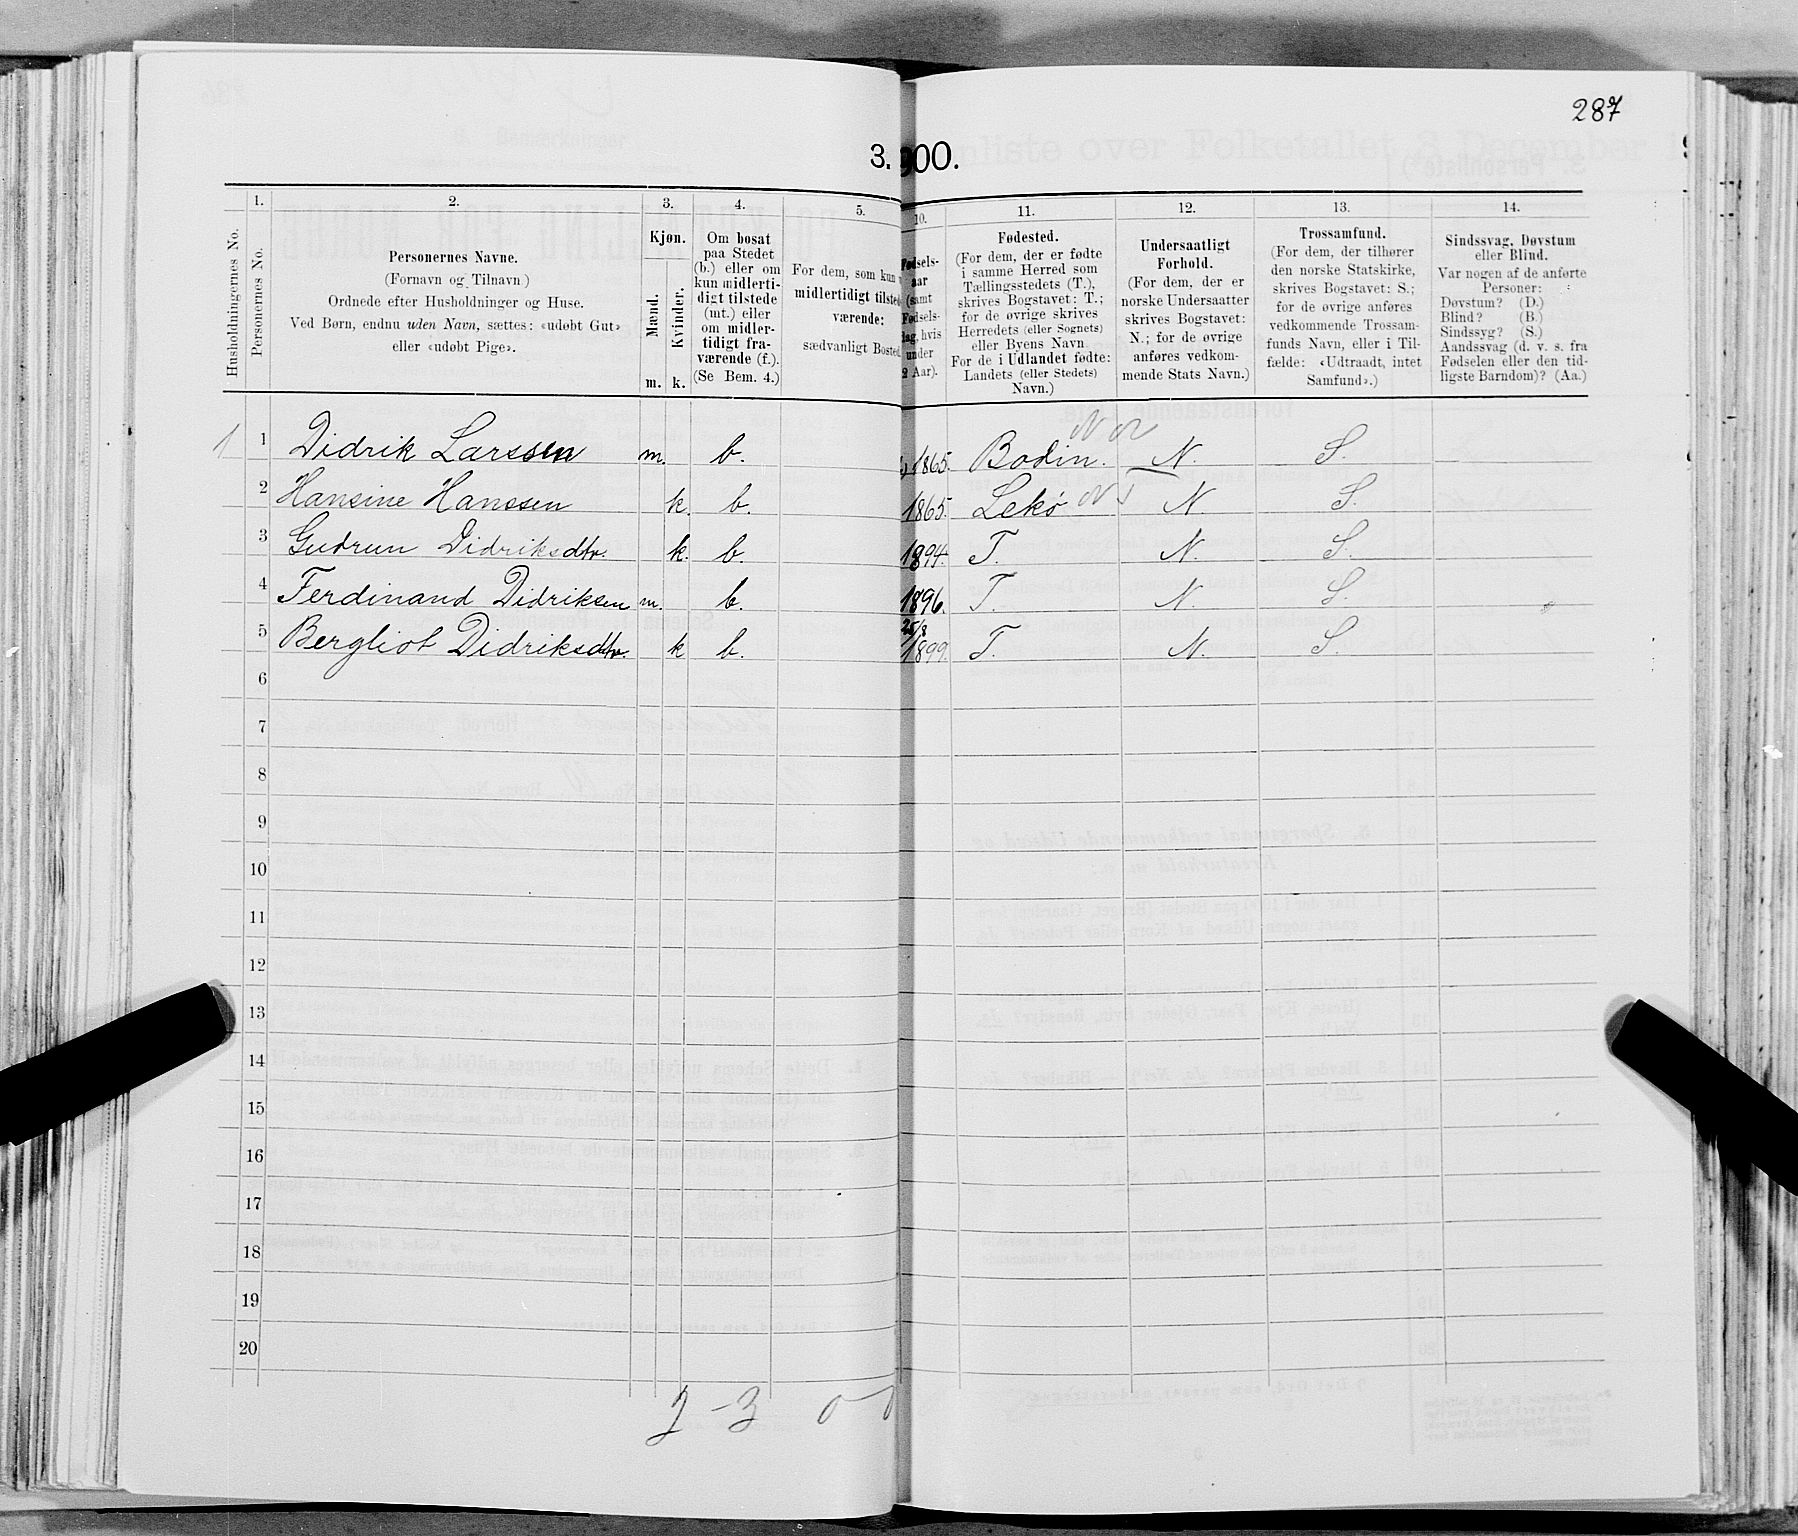 287
3. 900.
1. 2. 3. 4. 5. 10. 11. 12. 13. 14.
Husholdningernes No.
Personernes No.
Personernes Navne.
(Fornavn og Tilnavn)
Ordnede efter Husholdninger og Huse.
Ved Børn, endnu uden Navn, sættes: «udøbt Gut»
eller «udøbt Pige».
Kjøn.
Mænd.
Kvinder.
m. k.
Om bosat
paa Stedet
(b.) eller om
kun midlerti-
digt tilstede
(mt.) eller
om midler-
tidigt fra-
værende (f.).
(Se Bem. 4.)
For dem, som kun
midlertidigt tilsted
værende:
sædvanligt Bosted.
Fødsels-
aar
(samt
Fødsels-
dag, hvis
under
2 Aar).
Fødested.
(For dem, der er fødte
i samme Herred som
Tællingsstedets (T.),
skrives Bogstavet: T.;
for de øvrige skrives
Herredets (eller Sognets)
eller Byens Navn.
For de i Udlandet fødte:
Landets (eller Stedets)
Navn.)
Undersaatligt
Forhold.
(For dem, der er
norske Undersaatter
skrives Bogstavet:
N.; for de øvrige
anføres vedkom-
mende Stats Navn.)
Trossamfund.
(For dem, der tilhører
den norske Statskirke,
skrives Bogstavet: S.;
for de øvrige anføres
vedkommende Trossam-
funds Navn, eller i Til-
fælde: «Udtraadt, intet
Samfund».)
Sindssvag, Døvstum
eller Blind.
Var nogen af de anførte
Personer:
Døvstum? (D.)
Blind? (B.)
Sindssyg? (S.)
Aandssvag (d. v. s. fra
Fødselen eller den tid-
ligste Barndom)? (Aa.)
1 1 Didrik Larssen m. b. 1865. Bodin. N. S.
2 Hansine Hanssen k. b. 1865. Lekø N S.
3 Gudrun Didriksdtr. k. b. 1894. T. N. S.
4 Ferdinand Didriksen m. b. 1896. T. N. S.
5 Bergliot Didriksdtr. k b. 25/8 1899. T. N. S.
6
7
8
9
10
11
12
13
14
15
16
17
18
19
20
2 - 3 0 - 0